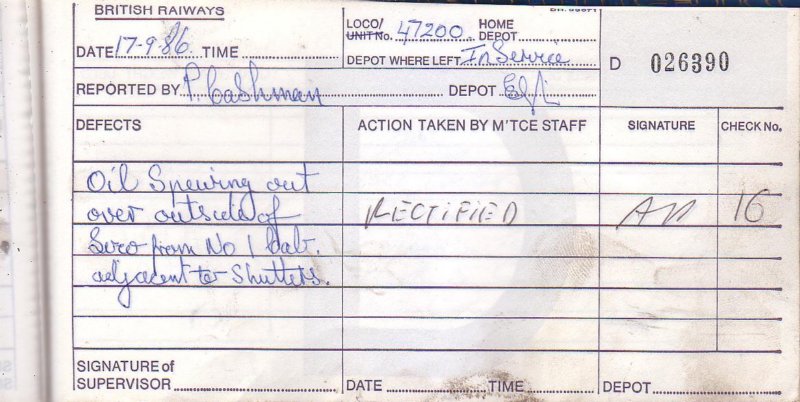 BRITISH RAILWAYS
LOCO/ UNIT No. 47200 HOME DEPOT
DATE 17-9-86 TIME
DEPOT WHERE LEFT In Service
D 026390
REPORTED BY P. Cashman DEPOT
DEFECTS ACTION TAKEN BY M'TCE STAFF SIGNATURE CHECK No.
Oil Spewing out
over outside of RECTIFIED 16
from No 1 Cab.
adjacent to Shutters.
SIGNATURE of
SUPERVISOR DATE TIME DEPOT